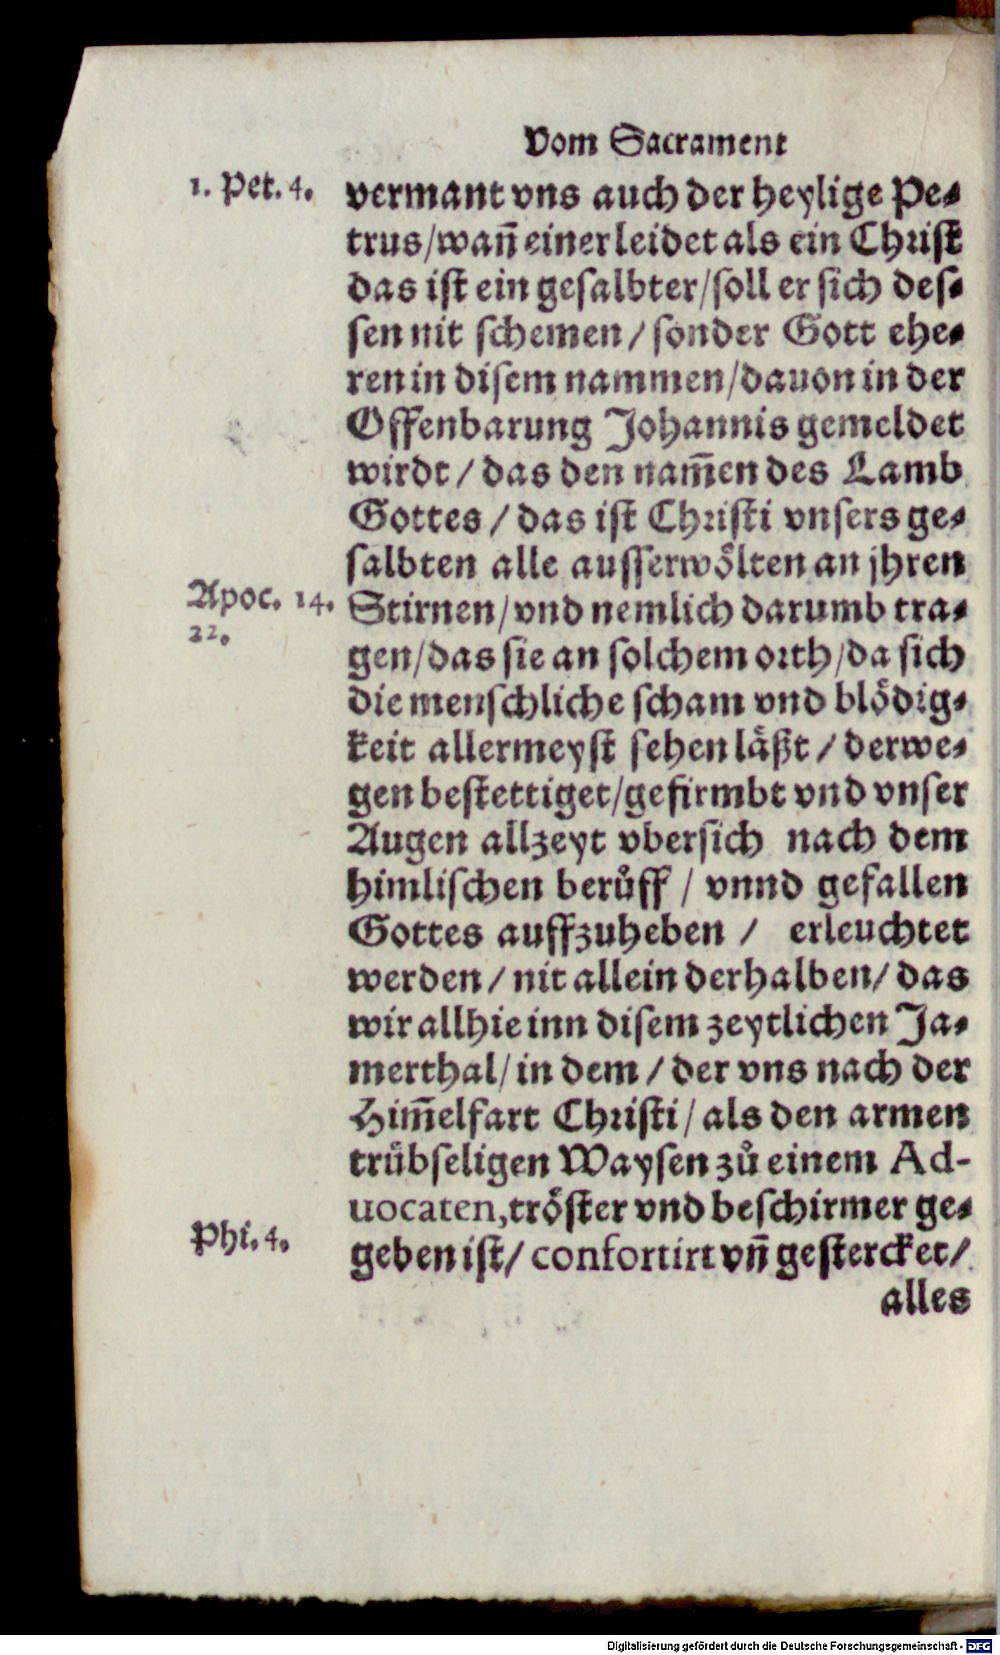 Vom Sacrament
1. Pet. 4. vermant vns auch der heylige Pe-
trus/wañ einer leidet als ein Christ
das ist ein gesalbter/soll er sich des-
sen nit schemen / sonder Gott ehe-
ren in disem nammen/dauon in der
Offenbarung Johannis gemeldet
wirdt / das den nam̃en des Lamb
Gottes / das ist Christi vnsers ge-
salbten alle ausserwölten an jhren
Apoc. 14. Stirnen/vnd nemlich darumb tra-
22. gen/das sie an solchem orth/da sich
die menschliche scham vnd blödig-
keit allermeyst sehen läßt / derwe-
gen bestettiget/gefirmbt vnd vnser
Augen allzeyt vbersich nach dem
himlischen berůff / vnnd gefallen
Gottes auffzuheben / erleuchtet
werden / nit allein derhalben/ das
wir allhie inn disem zeytlichen Ja-
merthal/in dem / der vns nach der
Him̃elfart Christi/ als den armen
trübseligen Waysen zů einem Ad-
uocaten,tröster vnd beschirmer ge-
Phi. 4. geben ist/ confortirt vñ gestercket/
alles
Digitalisierung gefördert durch die Deutsche Forschungsgemeinschaft - DFG